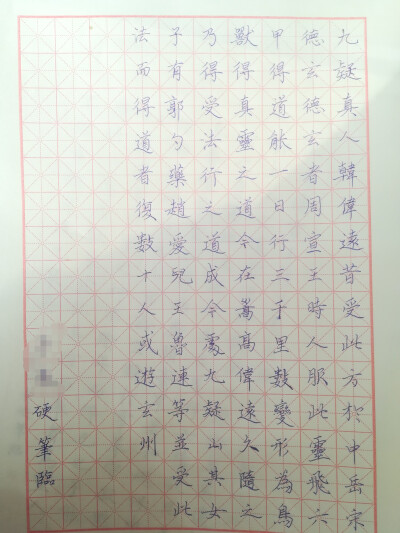 九疑真人韓偉遠昔受此方於中岳宋
德玄德玄者周宣王時人服此靈飛六
甲得道能一日行三千里數變形為鳥
獸得真靈之道今在嵩高偉遠久隨之
乃得受法行之道成今處九疑山其女
子有郭勺藥趙愛兒王魯連等並受此
法而得道者復數十人或遊玄州
硬筆臨